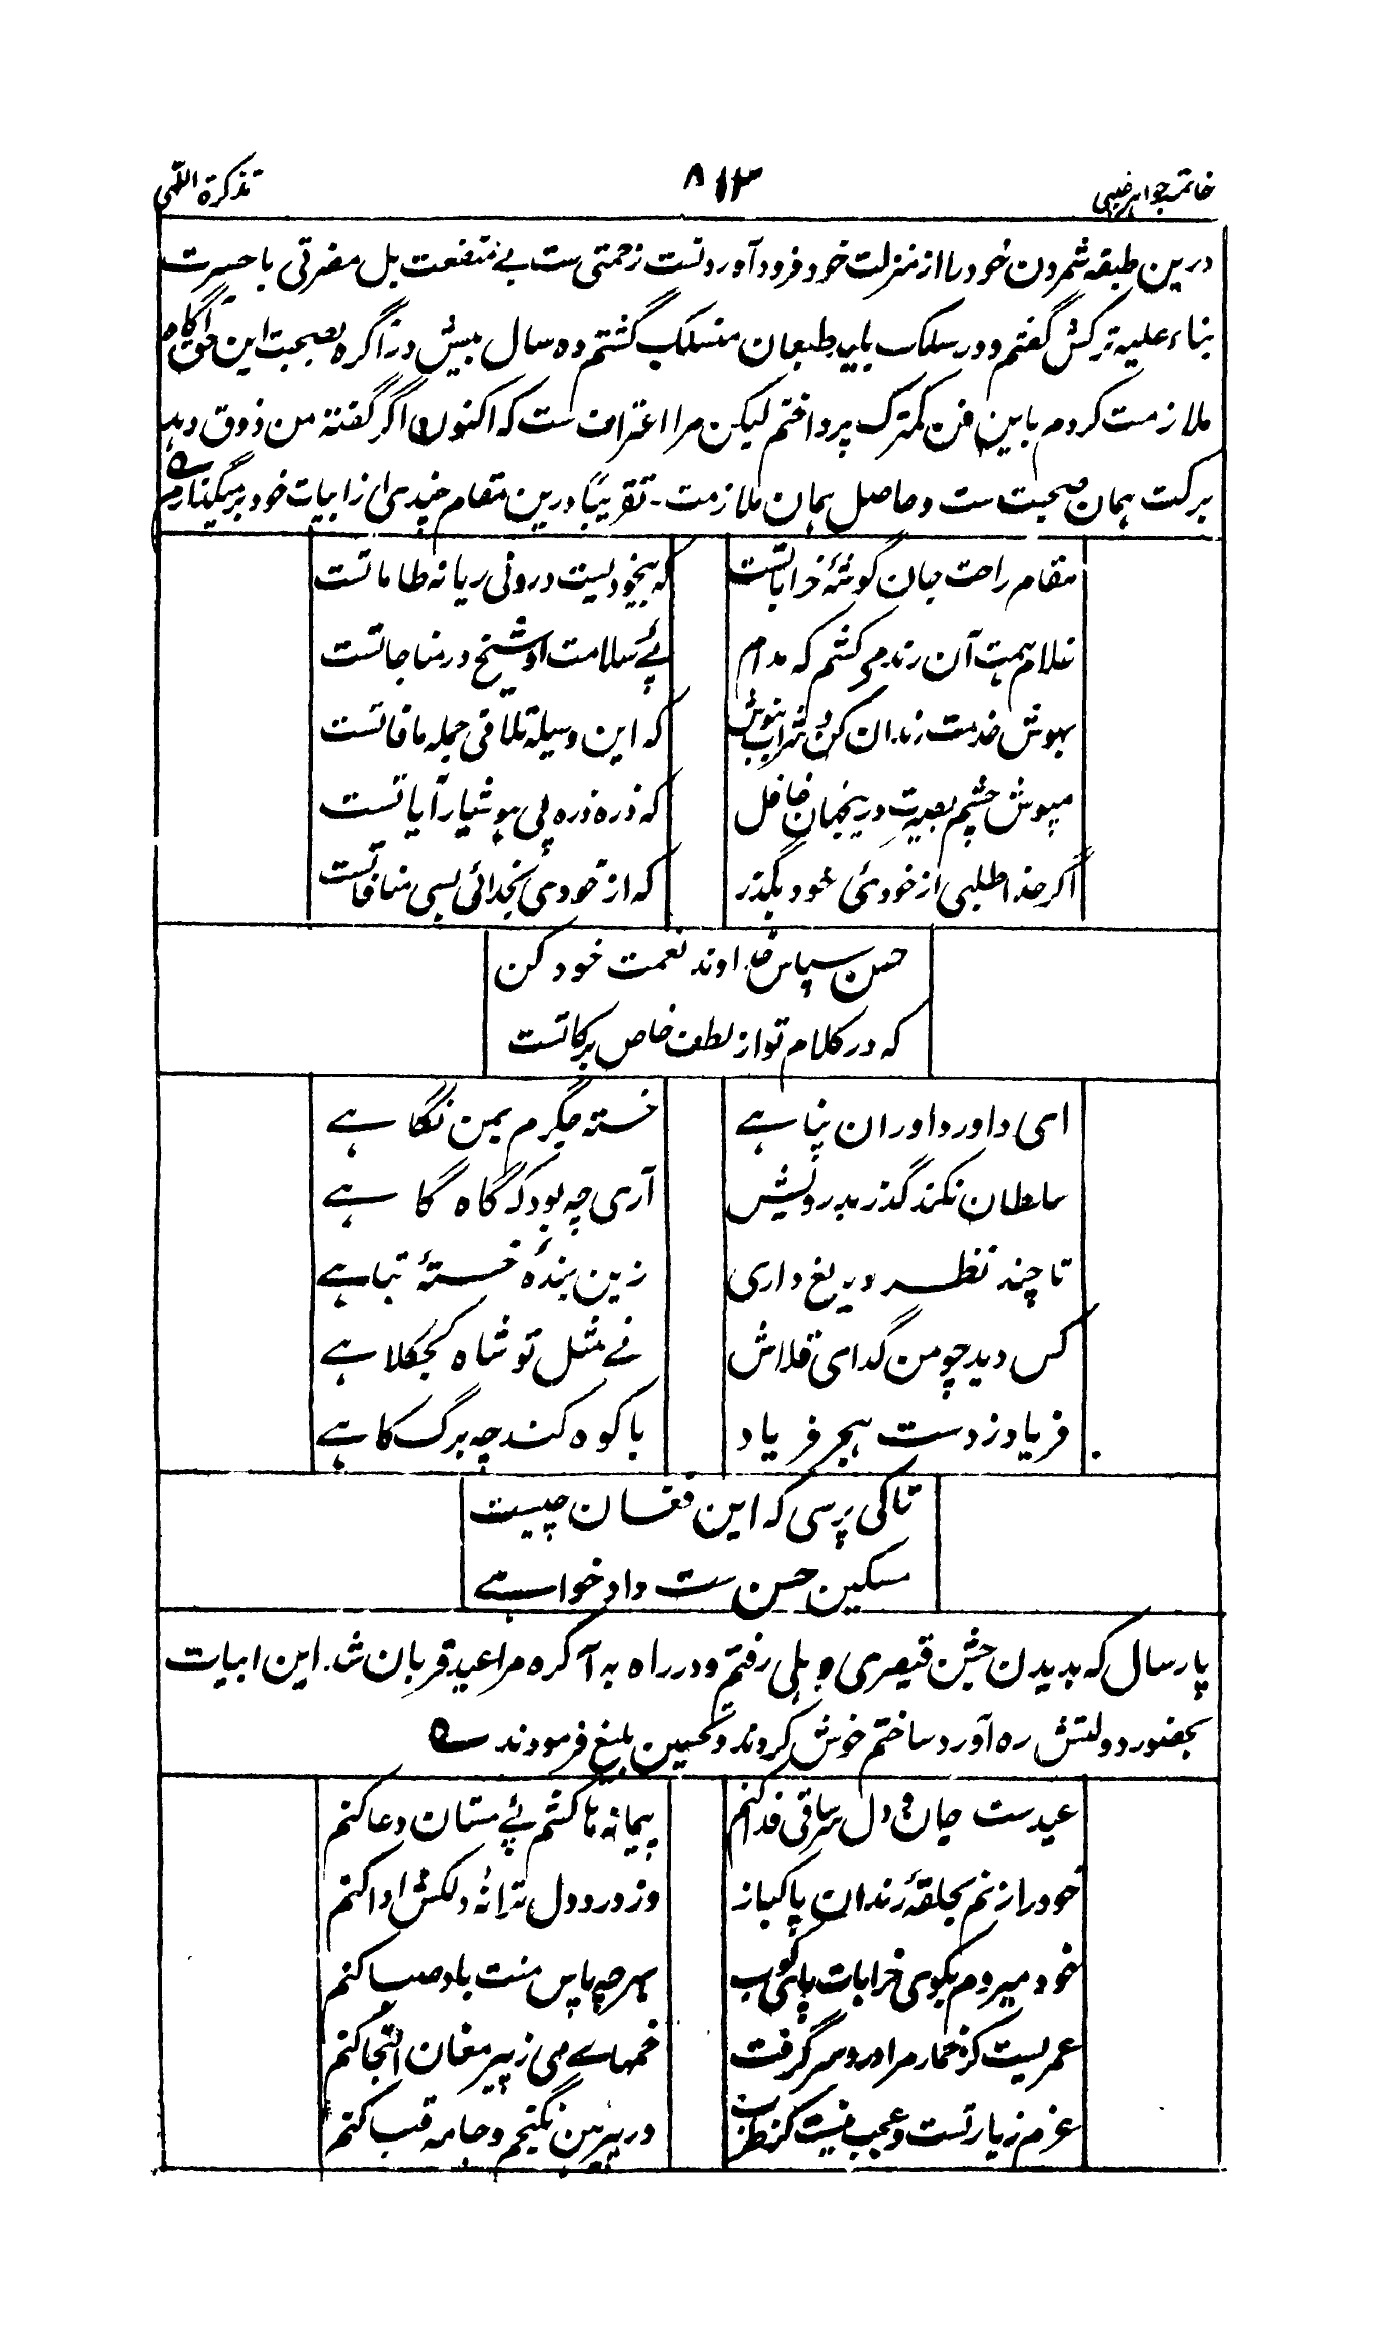 خاتمہ جواہر غیبی ۸۱۳ تذکرۃ اللّٰہی
درین طبقہ شمردن خود را از منزلت خود فرود آوردنست زحمتی ست بے منفعت بل مضرتی با حسرت
بناء علیہ ترکش گفتم و در سلک طبعان منسلک گشتم دہ سال بیش در آگرہ بصحبت این حق آگاہ
ملازمت کردم باین فن کمترک پرداختم لیکن مرا اعتراف ست کہ اکنون اگر گفتہ من ذوق دہد
برکت ہمان صحبت ست و حاصل ہمان ملازمت ۔ تقریباً درین مقام چندی از ابیات خود بر میگذارم ؎
مقام راحت جان گوشۂ خراباتست کہ بیخودیست درو نی ریا نہ طاماتست
غلام ہمت آن رند می کشم کہ مدام پئے سلامت او شیخ در مناجاتست
بہوش خدمت رندان کن و شراب بنوش کہ این وسیلہ تلافی جملہ مافاتست
مپوش چشم بصیرت درینجہان غافل کہ ذرہ ذرہ پی ہوشیار آیاتست
اگر خدا طلبی از خودئی خود بگذر کہ از خودی بخدائی بسی منافاتست
حسن سپاس خداوند نعمت خود کن
کہ در کلام تو از لطف خاص برکاتست
ای داور داوران پناہے خستہ جگرم بمن نگاہے
سلطان نکند گذر بدرویش آری چہ بود کہ گاہ گاہے
تا چند نظر دریغ داری زین بندۂ خستۂ تباہے
کس دید چو من گدای قلاش نے مثل تو شاہ کجکلاہے
فریاد ز دست ہجر فریاد با کوہ کند چہ برگ کاہے
تاکی پرسی کہ این فغان چیست
مسکین حسن ست دادخواہے
پارسال کہ بدیدن جشن قیصری دہلی رفتم و در راہ بہ آگرہ مرا عید قربان شد۔ این ابیات
بحضور دولتش رہ آورد ساختم خوش کردند و تحسین بلیغ فرمودند ؎
عیدست جان و دل سر ساقی فدا کنم پیمانہ ہا کشم پئے مستان دعا کنم
خود را زنم بحلقۂ رندان پاکباز وز درد دل ترانۂ دلکش ادا کنم
خود میروم بکوی خرابات پای کوب بہر چہ پاس منت باد صبا کنم
عمریست کز خمار مرا درد سر گرفت خمہاے می ز پیر مغان التجا کنم
عزم زیارتست و عجب نیست کز طرب در پیرہن نگنجم و جامہ قبا کنم